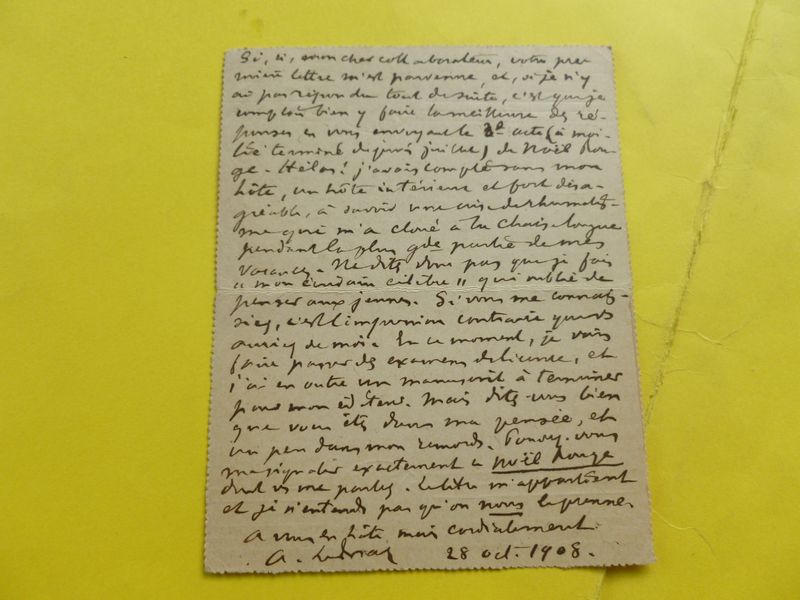 Si, si, mon cher collaborateur, votre pre
mière lettre m'est parvenue, et, si je n'y
ai pas répondu tout de suite, c'est que je
comptais bien y faire la meilleure des ré-
ponses en vous envoyant le 2d acte (à moi-
tié terminé depuis juillet) de Noël Rou-
ge. Hélas! j'avais compté sans mon
hôte, un hôte intérieur et fort désa-
gréable, à savoir une crise de rhumatis-
me qui m'a cloué à la chaise longue
pendant la plus gde partie de mes
vacances. Ne dites donc pas que je fais
"mon célèbre" qui oublie de
penser aux jeunes. Si vous me connais-
siez, c'est l'impression contraire que vs
auriez de moi. En ce moment, je vais
faire passer des examens de licence, et
j'ai en outre un manuscrit à terminer
pour mon éditeur. Mais dites-vous bien
que vous êtes dans ma pensée, et
un peu dans mon remords. Pouvez-vous
me signaler exactement ce Noël Rouge
dont vs me parlez. Le titre m'appartient
et je n'entends pas qu'on nous le prenne.
A vous en hâte, mais cordialement.
A. 28 oct. 1908.